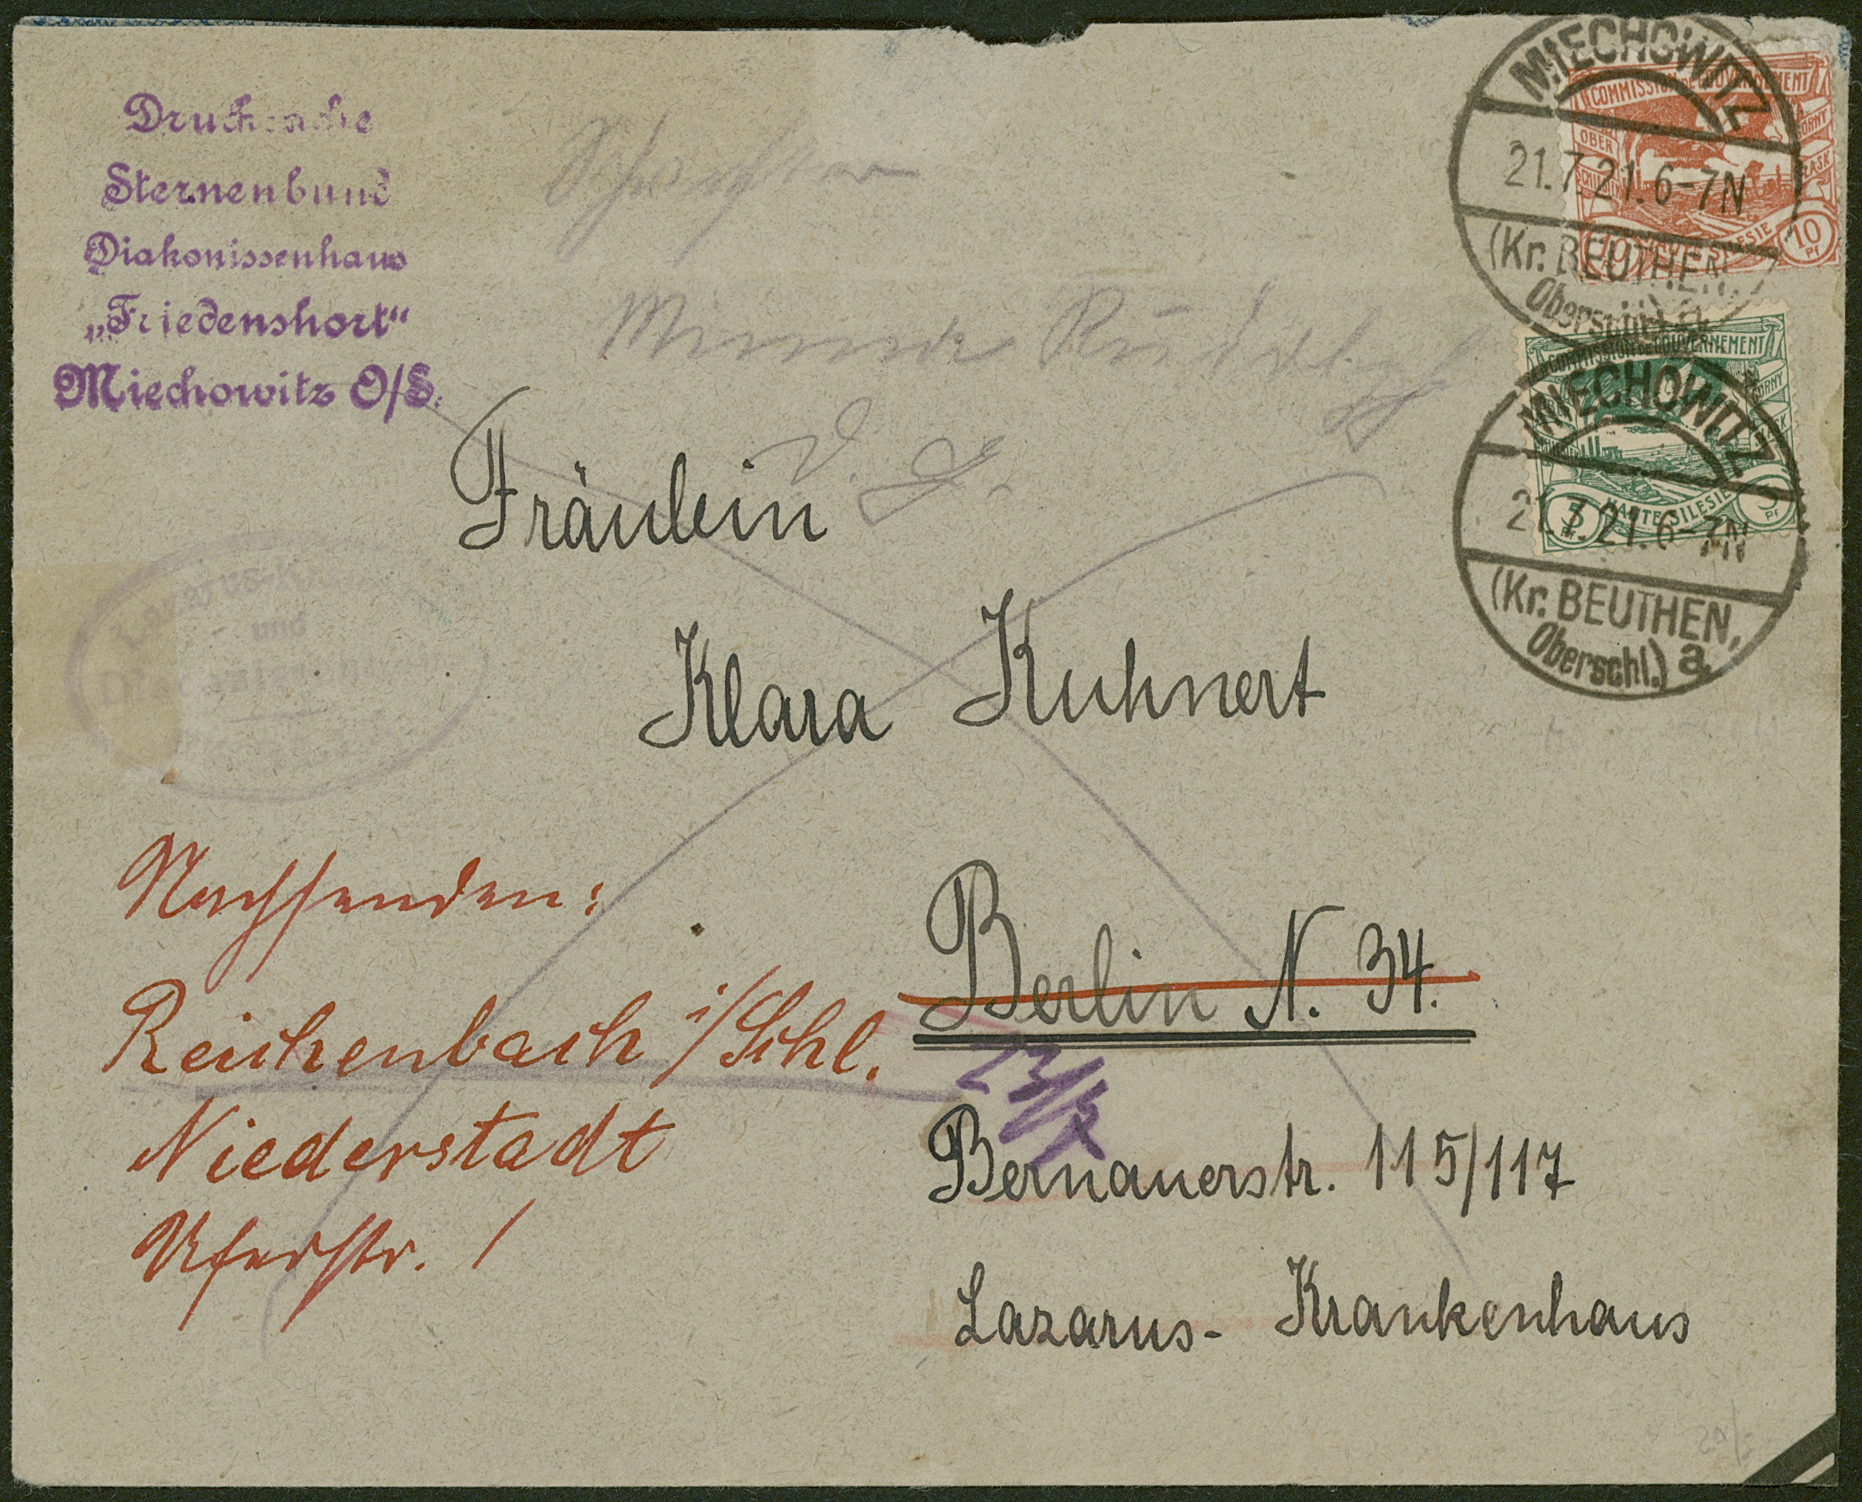 Drucksache
Sternenbund
Diakonissenhaus
„Friedenshort“
Miechowitz O/S.
Schwester
MIECHOWITZ
21.7.21.6-7N
(Kr. BEUTHEN,
Oberschl.)
COMMISSION DE GOUVERNEMENT
OBER
HAUTE SILESIE
10 10
Pf
Minna
v. G.
MIECHOWITZ
21.7.21.6-7N
(Kr. BEUTHEN,
Oberschl.) a.
COMMISSION DE GOUVERNEMENT
HAUTE SILESIE
5 5
Pf
Fräulein
Klara Kuhnert
Lazarus-
und
Berlin N. 34.
23/7
Bernauerstr. 115/117
Lazarus- Krankenhaus
Nachsenden:
Reichenbach i/Schl.
Niederstadt
Uferstr. 1